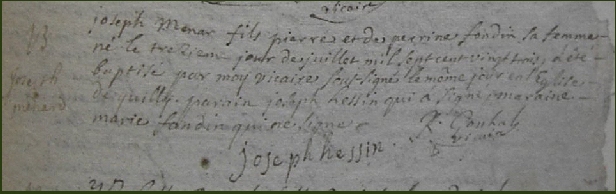 vicaire
13
joseph menar fils pierre et de perrine fondin sa femme
né le trezieme jour de juillet mil sept cent vingt trois, a été
joseph
baptisé par moy vicaire soussigné le même jour en l'église
menard
de quilly. parain joseph hessin qui a signé maraine
marie fondin qui ne signe
joseph hessin.
vicaire